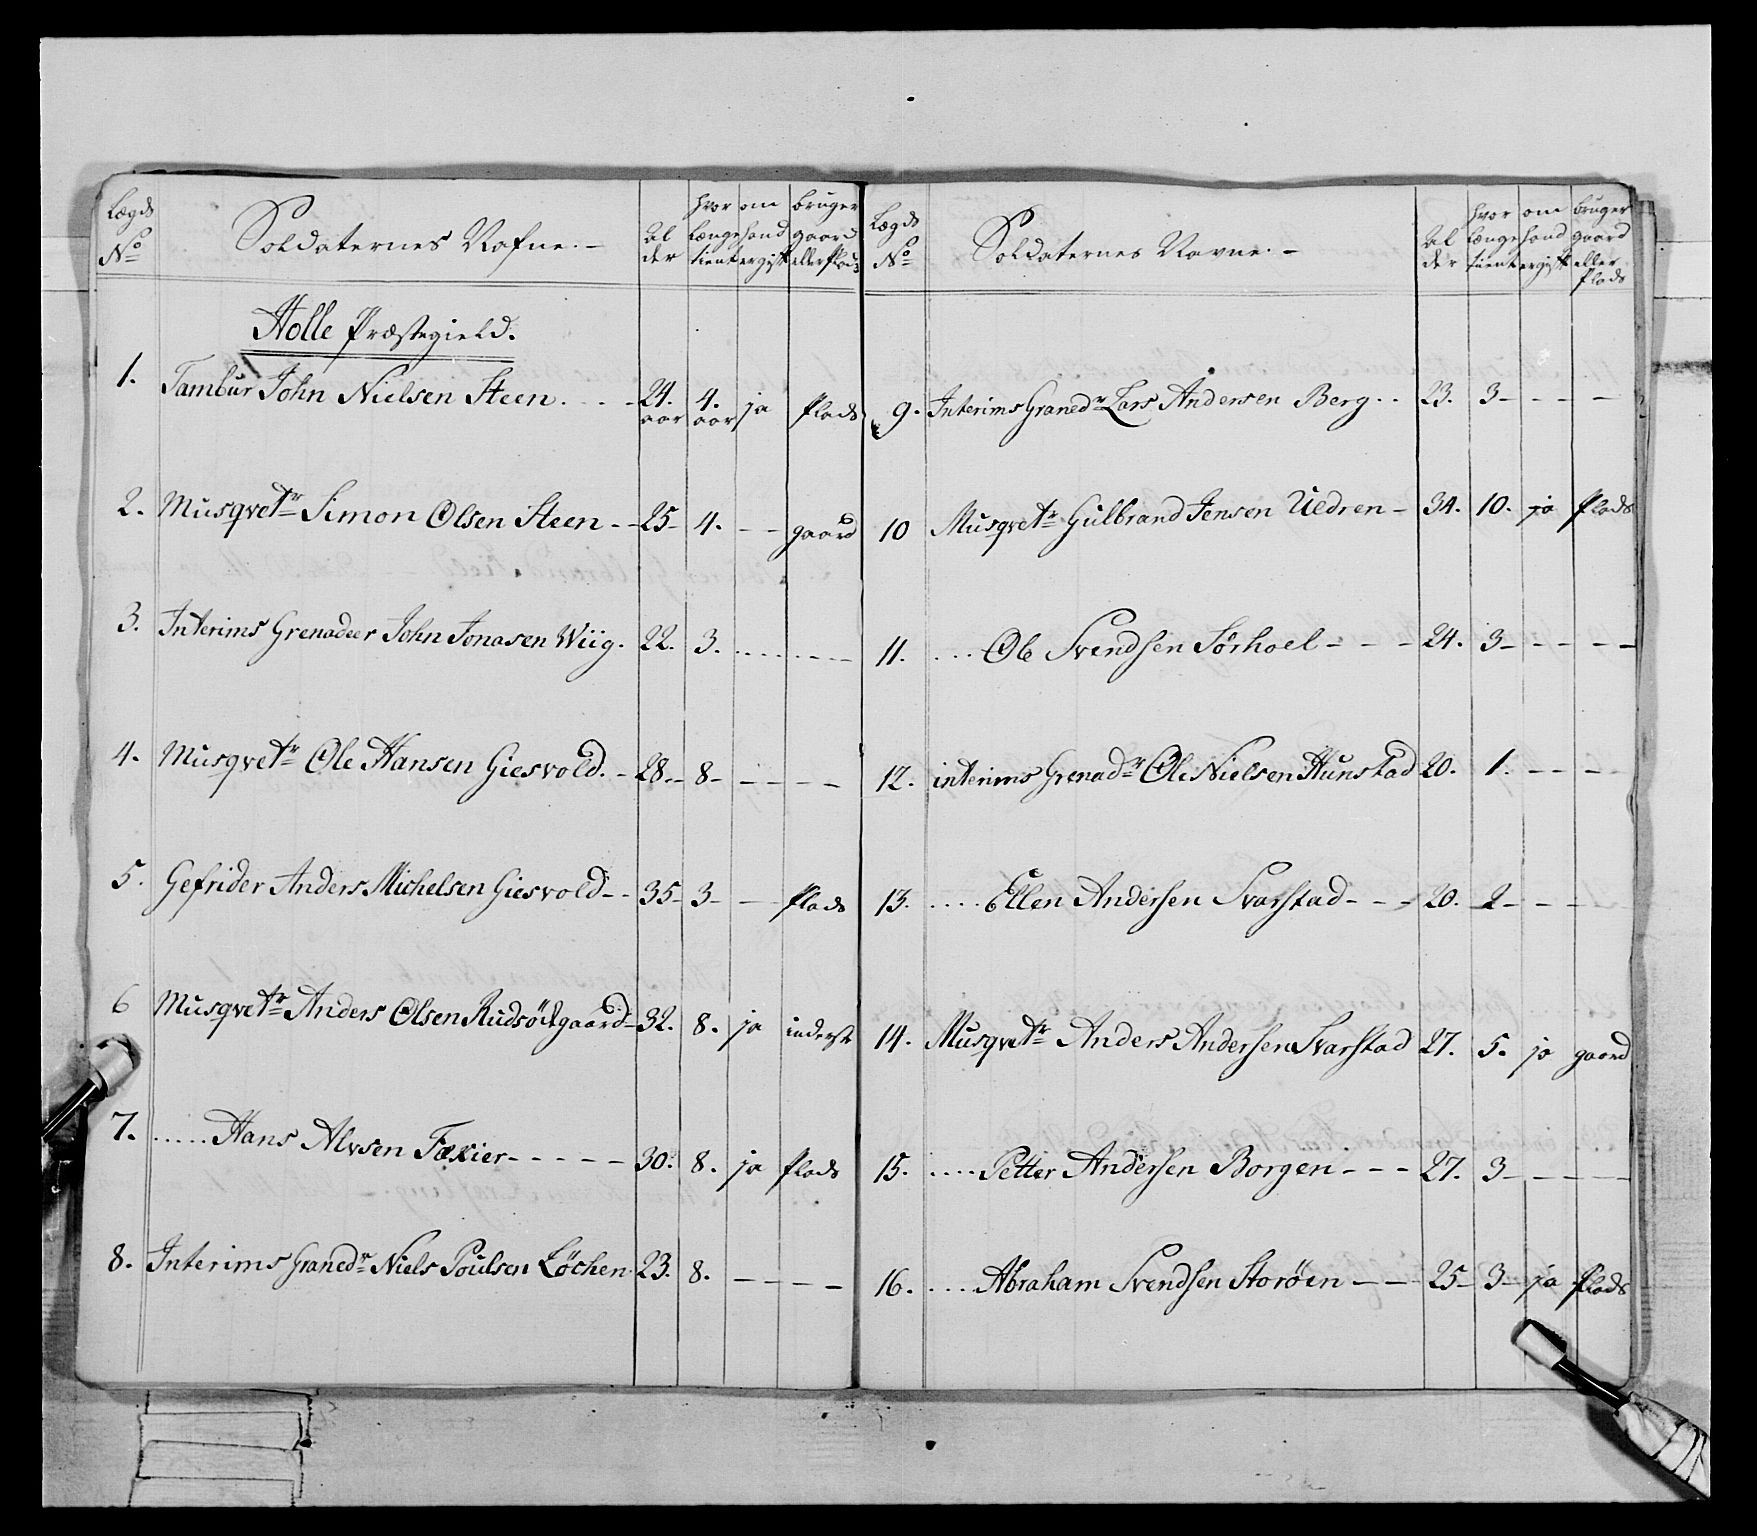 Lægds No Soldaternes Nafne. - Al der hvor længe tient om hand er gift bruger gaard eller Plads
Holle Præstegield.
1. Tambur John Nielsen Steen . . . - 24. aar 4. aar ja Plads
2. Musqvetr Simon Olsen Steen - - 25 - 4. - - gaard
3. Interims Grenadeer John Jonasen Wiig. 22. 3. . . . . - - -
4. Musqvetr Ole Hansen Giesvold. - 28 - - 8 - - - - -
5. Gefrider Anders Michelsen Giesvold - - 35 - 3 - - - Plads
6 Musqvetr Anders Olsen - 32. 8. ja inderst
7. . . . . . Hans Alvsen Fæxier - - - - - 30. 8. ja Plads
8. Interims Granedr Niels Poulsen Löchen. 23. 8. - - - - -
Lægds No Soldaternes Navne. - Al der hvor længe tient om hand er gift bruger gaard eller Plads
9. Interims Granedr Lars Andersen Berg . . 23. 3 - - - -
10 Musqvetr Gulbrand Jensen Uedren - 34. 10. ja Plads
11. . . . . Ole Svendsen Sörhoel - - - 24. 3 - - - - -
12. interims Grenadr Ole Nielsen Hunstad 20. 1. - - - -
13. . . . . Ellen Andersen Svarstad - - - 20. 2 - - - -
14. Musqvetr Anders Andersen Svarstad 27. 5. ja gaard
15. . . . . Petter Andersen Borgen - - - 27. 3 - - - - -
16. . . . . Abraham Svendsen Storöen - - 25 - 3 - ja Plads